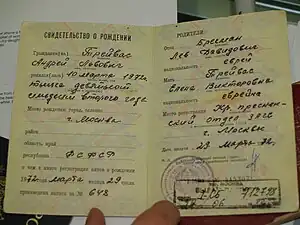 СВИДЕТЕЛЬСТВО О РОЖДЕНИИ
Гражданин(ка) Трейвас
Андрей Львович
родился(лась) 10 марта 1972
тысяча девятьсот
семьдесят второго года
Место рождения: город, селение
г. Москва
район
область, край
республика РСФСР
о чем в книге регистрации актов о рождении
1972 года марта месяца 29 числа
произведена запись за № 648
РОДИТЕЛИ:
Отец Бреслан
Лев Давидович
национальность еврей
Мать Трейвас
Елена Викторовна
национальность еврейка
Место регистрации Кр. преснен-
ский отдел ЗАГС
г. Москвы
Дата выдачи 29 марта 72